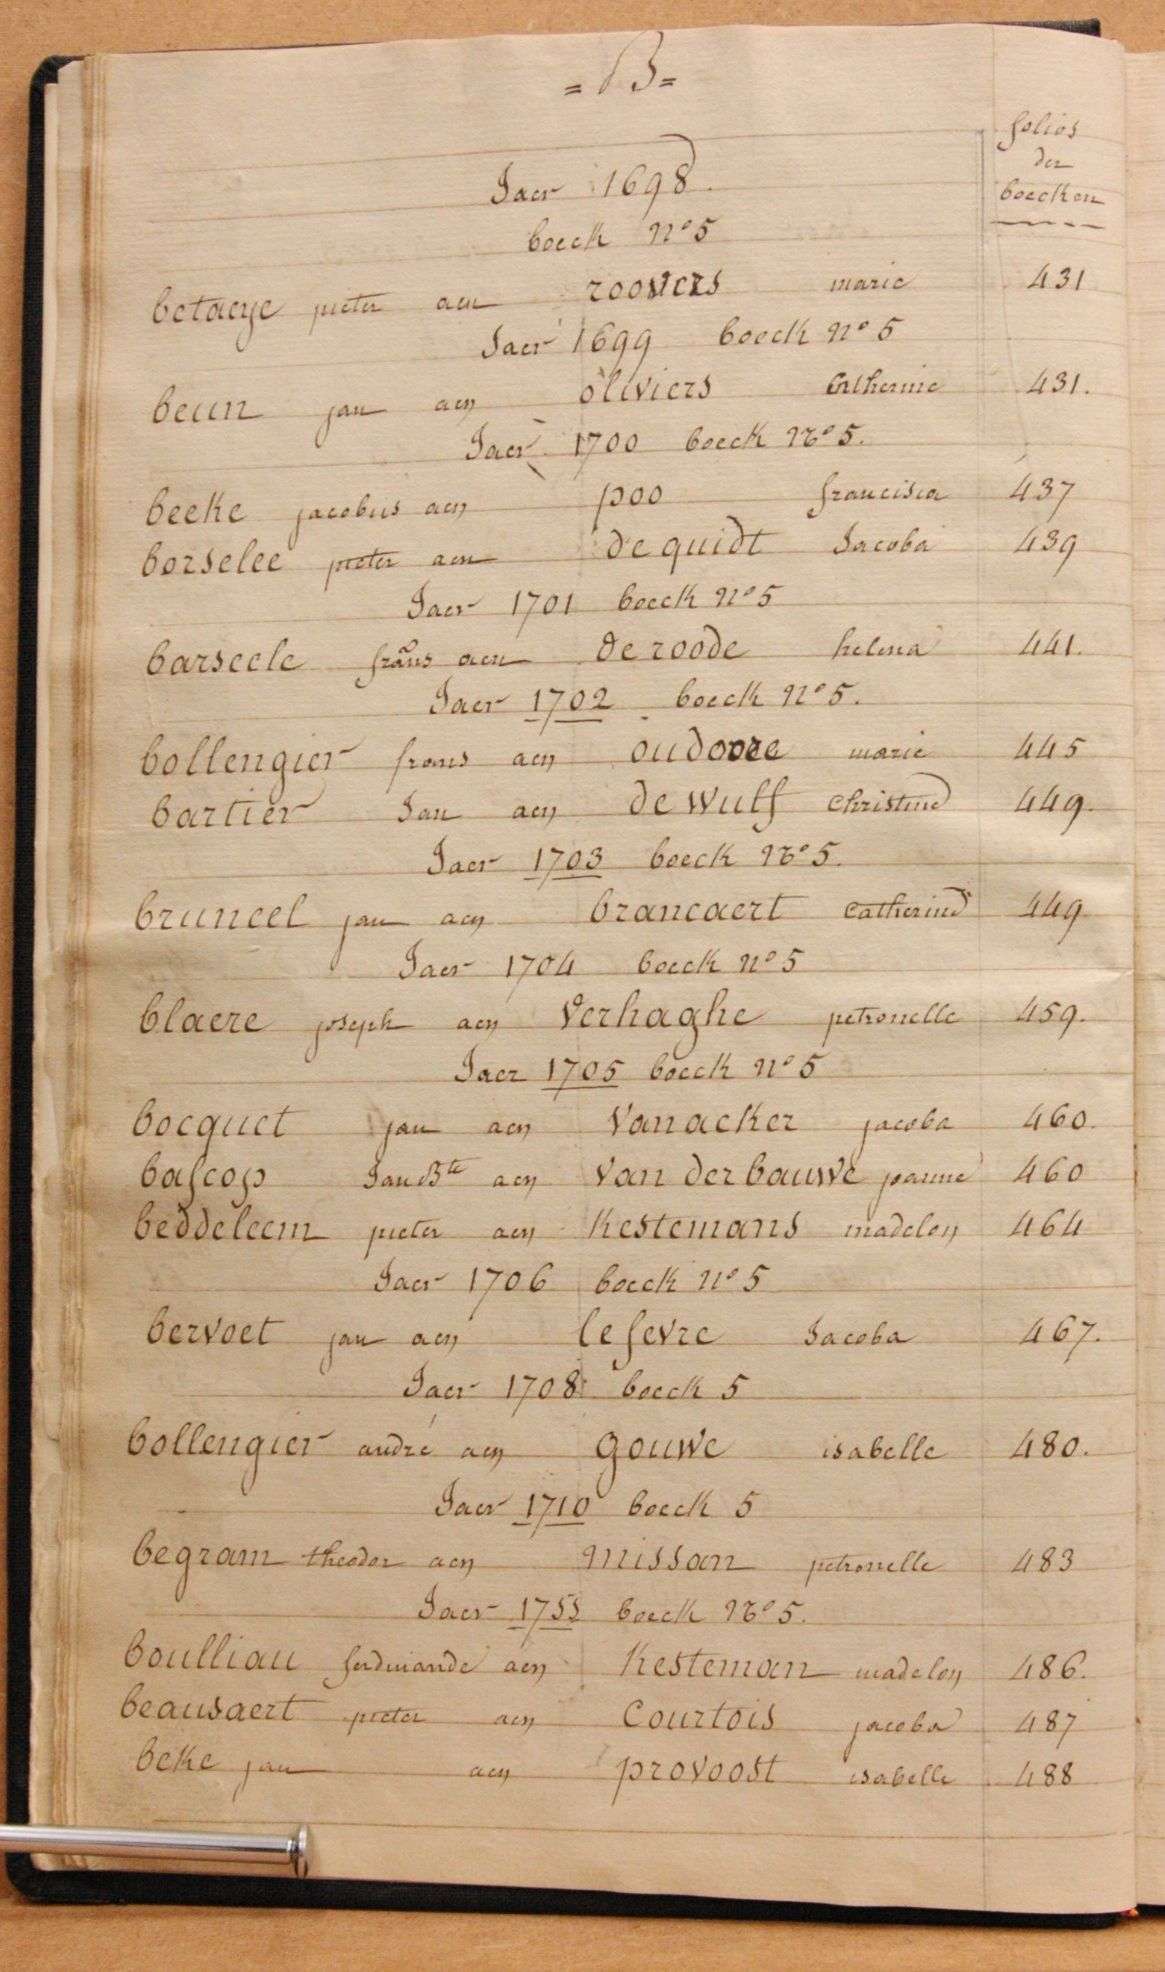 = B =
folios
der
boecken
Jaer 1698.
boeck N° 5
betaeye pieter aen roosters marie 431
Jaer 1699 boeck N° 5
beun jan aen oliviers catherine 431.
Jaer 1700 boeck N° 5.
beeke jacobus aen poo francisca 437
borselee pieter aen de quidt Jacoba 439
Jaer 1701 boeck N° 5
barseele frans aen de roode helena 441.
Jaer 1702 boeck N° 5.
bollengier frans aen oudoore marie 445
bartier Jan aen de wulf christine 449.
Jaer 1703 boeck N° 5.
bruneel jan aen brancaert catherine 449
Jaer 1704 boeck N° 5
blaere joseph aen verhaghe petronelle 459.
Jaer 1705 boeck N° 5
bocquet jan aen vanacker jacoba 460.
bascop Jan Bte aen van der bauwe joanne 460
beddeleem pieter aen kestemans madelen 464
Jaer 1706 boeck N° 5
bervoet jan aen lefevre Jacoba 467.
Jaer 1708 boeck 5
bollengier andré aen gouwe isabelle 480.
Jaer 1710 boeck 5
begram theodor aen missan petronelle 483
Jaer 1755 boeck N° 5.
boulliau ferdinande aen kesteman madelen 486.
beausaert pieter aen courtois jacoba 487
beke jan aen provoost isabelle 488